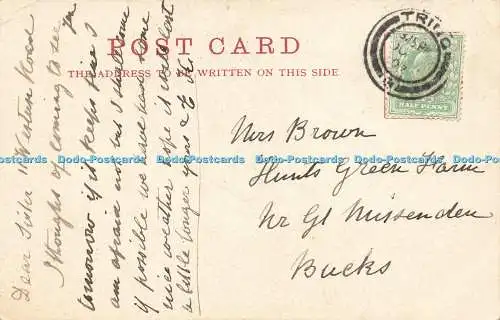 POST CARD
THE ADDRESS TO BE WRITTEN ON THIS SIDE
TRING
HALF PENNY
Dear Sister 11 Western Road
I thought of coming to see
tomorrow if it keeps fine I
am afraid not but I shall come
if possible we have had some
nice weather hope it will last
a little longer yours E
Mrs Brown
Hunts Green Farm
Nr Gt Missenden
Bucks
Dodo-Postcards Dodo-Postcards Dodo-Postcards Dodo-Postcards Dodo-Postcards Dodo-Postcards